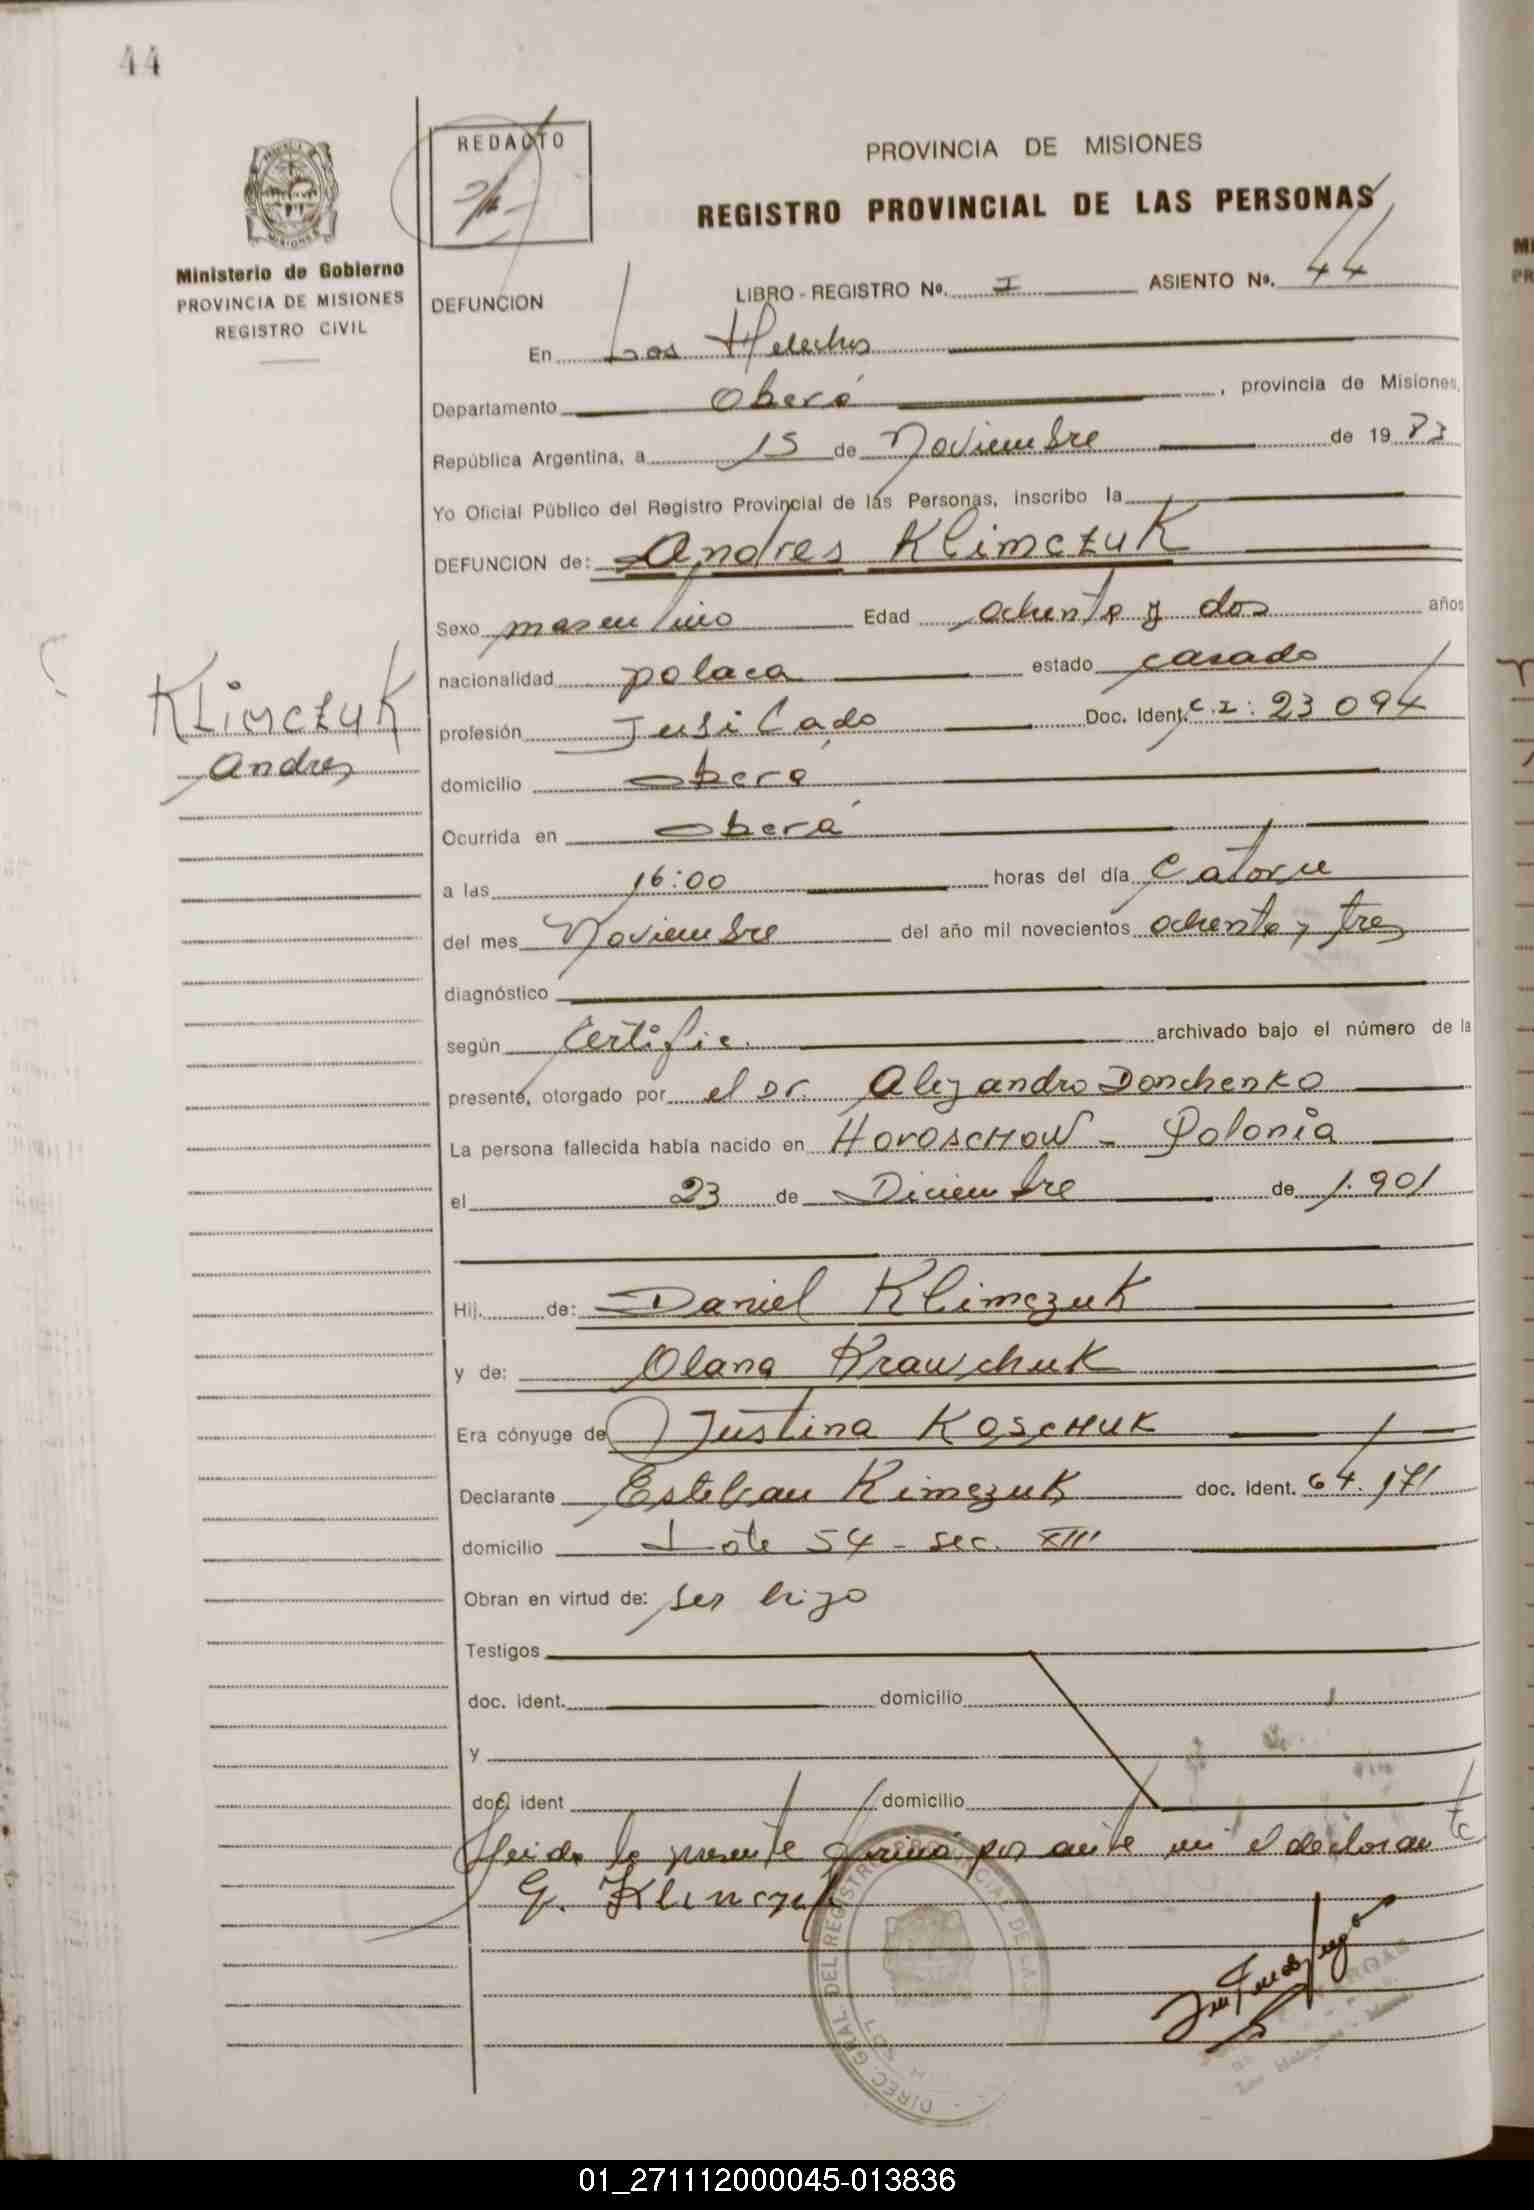 44
REDACTO
PROVINCIA DE MISIONES
REGISTRO PROVINCIAL DE LAS PERSONAS
Ministerio de Gobierno
PROVINCIA DE MISIONES
REGISTRO CIVIL
DEFUNCION
LIBRO - REGISTRO Nº. I ASIENTO Nº. 44
En Los Helechos
Departamento Oberá, provincia de Misiones,
República Argentina, a 15 de Noviembre de 1983
Yo Oficial Público del Registro Provincial de las Personas, inscribo la
DEFUNCION de: Andres Klimczuk
Sexo masculino Edad ochenta y dos años
nacionalidad polaca estado casado
Klimczuk
Andres
profesión Jubilado Doc. Ident. C.I: 23 094
domicilio Oberá
Ocurrida en Oberá
a las 16:00 horas del día Catorce
del mes Noviembre del año mil novecientos ochenta y tres
diagnóstico
según Certific. archivado bajo el número de la
presente, otorgado por el Dr. Alejandro Donchenko
La persona fallecida había nacido en HOROSCHOW - Polonia
el 23 de Diciembre de 1.901
Hij. de: Daniel Klimczuk
y de: Olana Krawchuk
Era cónyuge de Justina KOSCHUK
Declarante Esteban Kimczuk doc. ident. 64.171
domicilio Lote 54 - sec. XIII
Obran en virtud de: ser hijo
Testigos
doc. ident. domicilio
y
doc. ident domicilio
Leida la presente firmó por ante mi el declarante
DIREC. GRAL DEL REGISTRO PROVINCIAL DE LAS
01_271112000045-013836